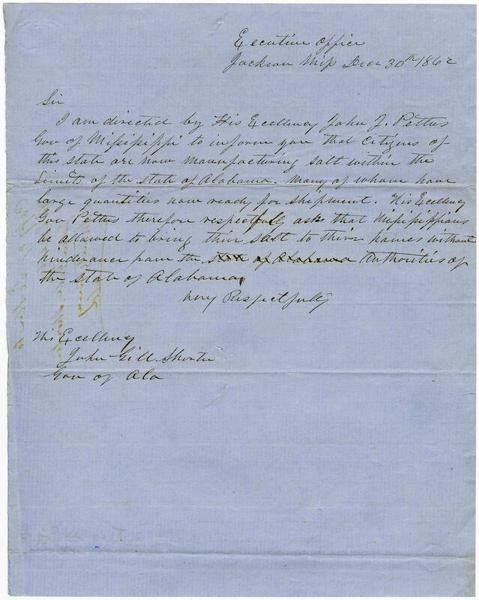 Executive Office
Jackson Miss Decr 30th 1862
Sir
I am directed by His Excellency John J. Pettus
Gov of Mississippi to inform you that Citizens of
this state are now manufacturing Salt within the
Limits of the state of Alabama. Many of whom have
large quantities now ready for shipment. His Excellency
Gov Pettus therefore respectfully asks that Mississippians
be allowed to bring their Salt to their homes without
hinderance from the State of Alabama Authorities of
the State of Alabama,
Very Respectfully
His Excellency
John Gill Shorter
Gov of Ala